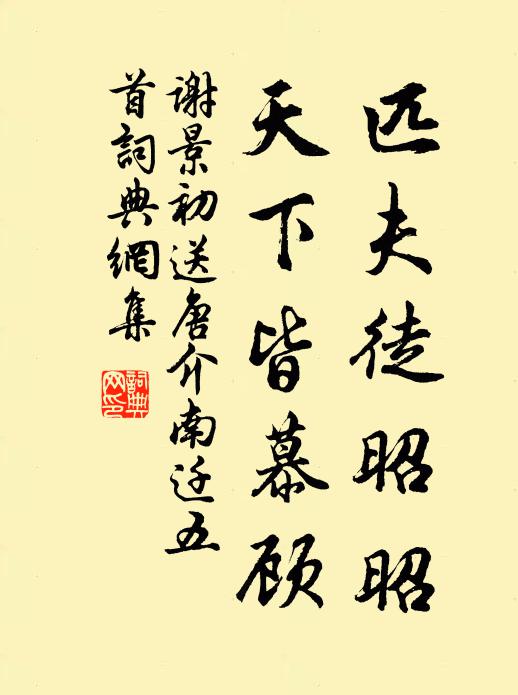 匹夫徒昭昭
天下皆慕顾
谢景初送唐介南迁五
首詞典網集
詞典網印